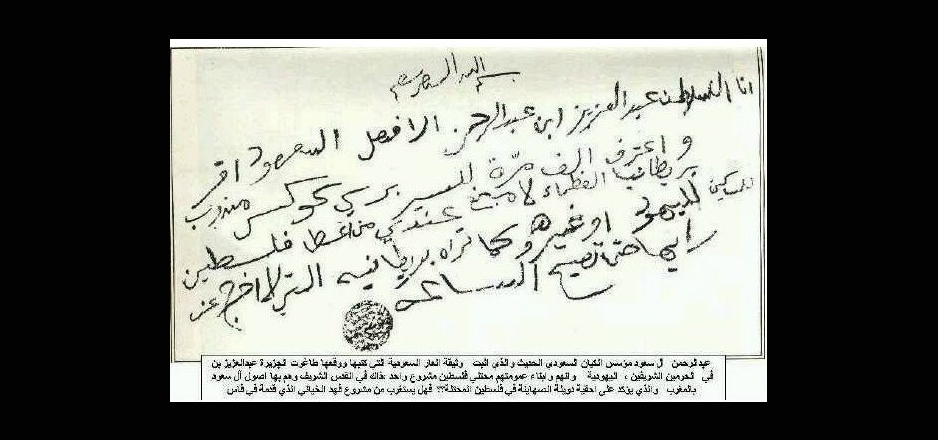 انا السلطان عبد العزيز ابن عبد الرحمن ال فيصل السعود اقر
و اعترف الف مرّة للسير برسي كوكس مندوب
بريطانيا العظماء لا مانع عندي من اعطا فلسطين
للمساكين لليهود او غيرهم وكما تراه بريطانيه التي لا اخرج عن
رايها حتى تصيح الساعه
عبدالرحمن آل سعود مؤسس الكيان السعودي الحديث والذي اثبت وثيقة العار السعودية التي كتبها ووقعها طاغوت الجزيرة عبدالعزيز بن
في الحرمين الشريفين ، اليهودية وانهم وابناء عمومتهم محتلي فلسطين مشروع واحد ،ذاك في القدس الشريف وهم بها اصول آل سعود
بالمغرب والذي يؤكد على احقية دويلة الصهاينة في فلسطين المحتلة؟؟ فهل يستغرب من مشروع فهد الخياني الذي قدمة في فاس